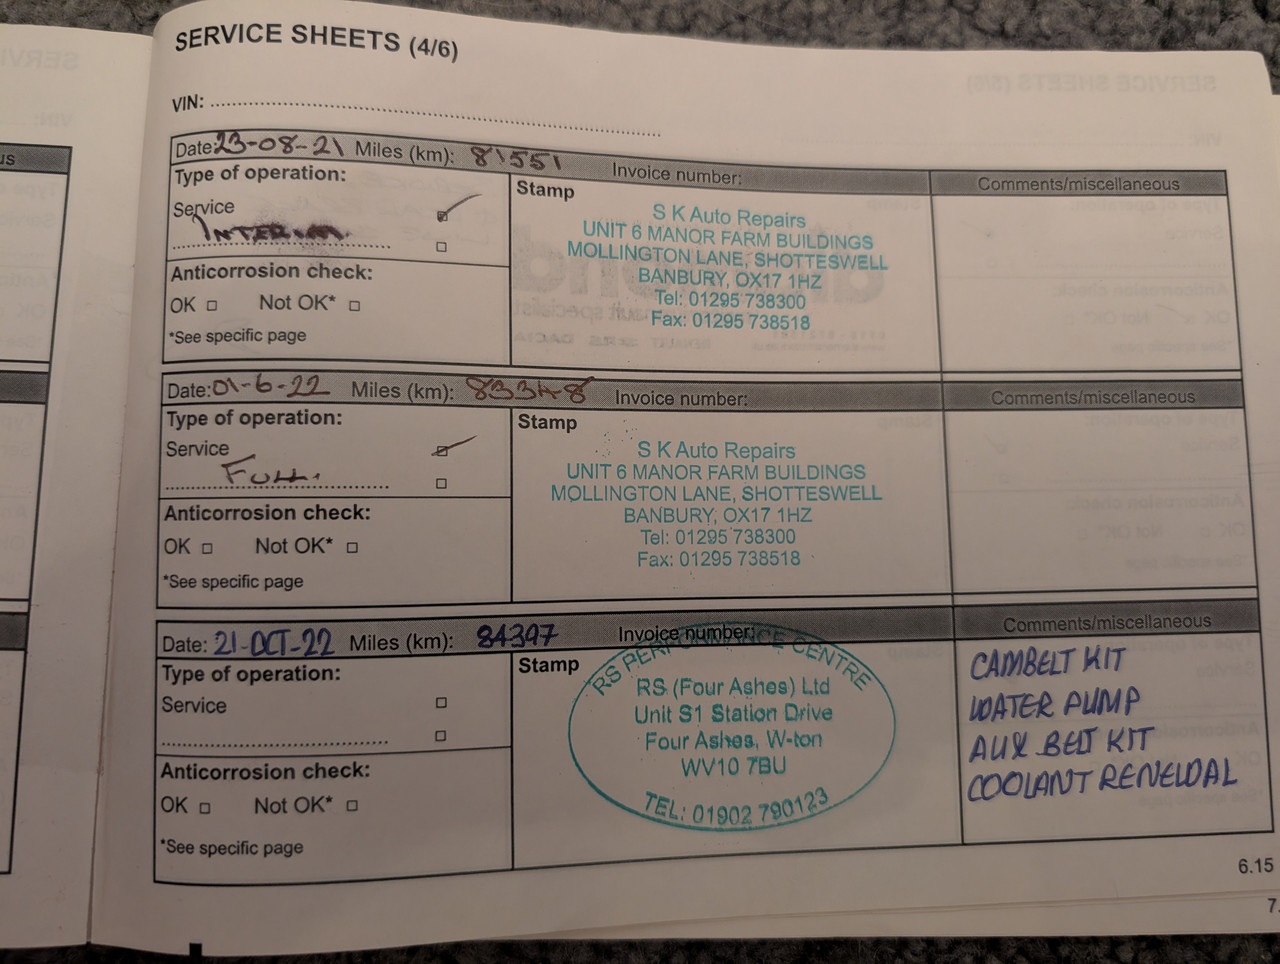 SERVICE SHEETS (4/6)
VIN:
Date: 23-08-21 Miles (km): 81551 Invoice number: Comments/miscellaneous
Type of operation:
Service
INTERIM
Anticorrosion check:
OK Not OK*
*See specific page
Stamp
S K Auto Repairs
UNIT 6 MANOR FARM BUILDINGS
MOLLINGTON LANE, SHOTTESWELL
BANBURY, OX17 1HZ
Tel: 01295 738300
Fax: 01295 738518
Date: 01-6-22 Miles (km): 83348 Invoice number: Comments/miscellaneous
Type of operation:
Service
FULL.
Anticorrosion check:
OK Not OK*
*See specific page
Stamp
S K Auto Repairs
UNIT 6 MANOR FARM BUILDINGS
MOLLINGTON LANE, SHOTTESWELL
BANBURY, OX17 1HZ
Tel: 01295 738300
Fax: 01295 738518
Date: 21-OCT-22 Miles (km): 84397 Invoice number: Comments/miscellaneous
Type of operation:
Service
Anticorrosion check:
OK Not OK*
*See specific page
Stamp
RS PERFORMANCE CENTRE
RS (Four Ashes) Ltd
Unit S1 Station Drive
Four Ashes, W-ton
WV10 7BU
TEL: 01902 790123
CAMBELT KIT
WATER PUMP
AUX BELT KIT
COOLANT RENEWAL
6.15
7.